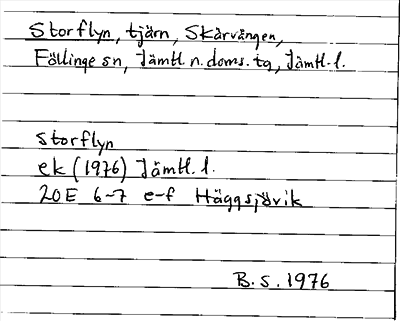 Storflyn, tjärn, Skärvången,
Föllinge sn, Jämtl. n. doms. tg, Jämtl. l.
Storflyn
ek (1976) Jämtl. l.
20E 6-7 e-f Häggsjövik
B. S. 1976